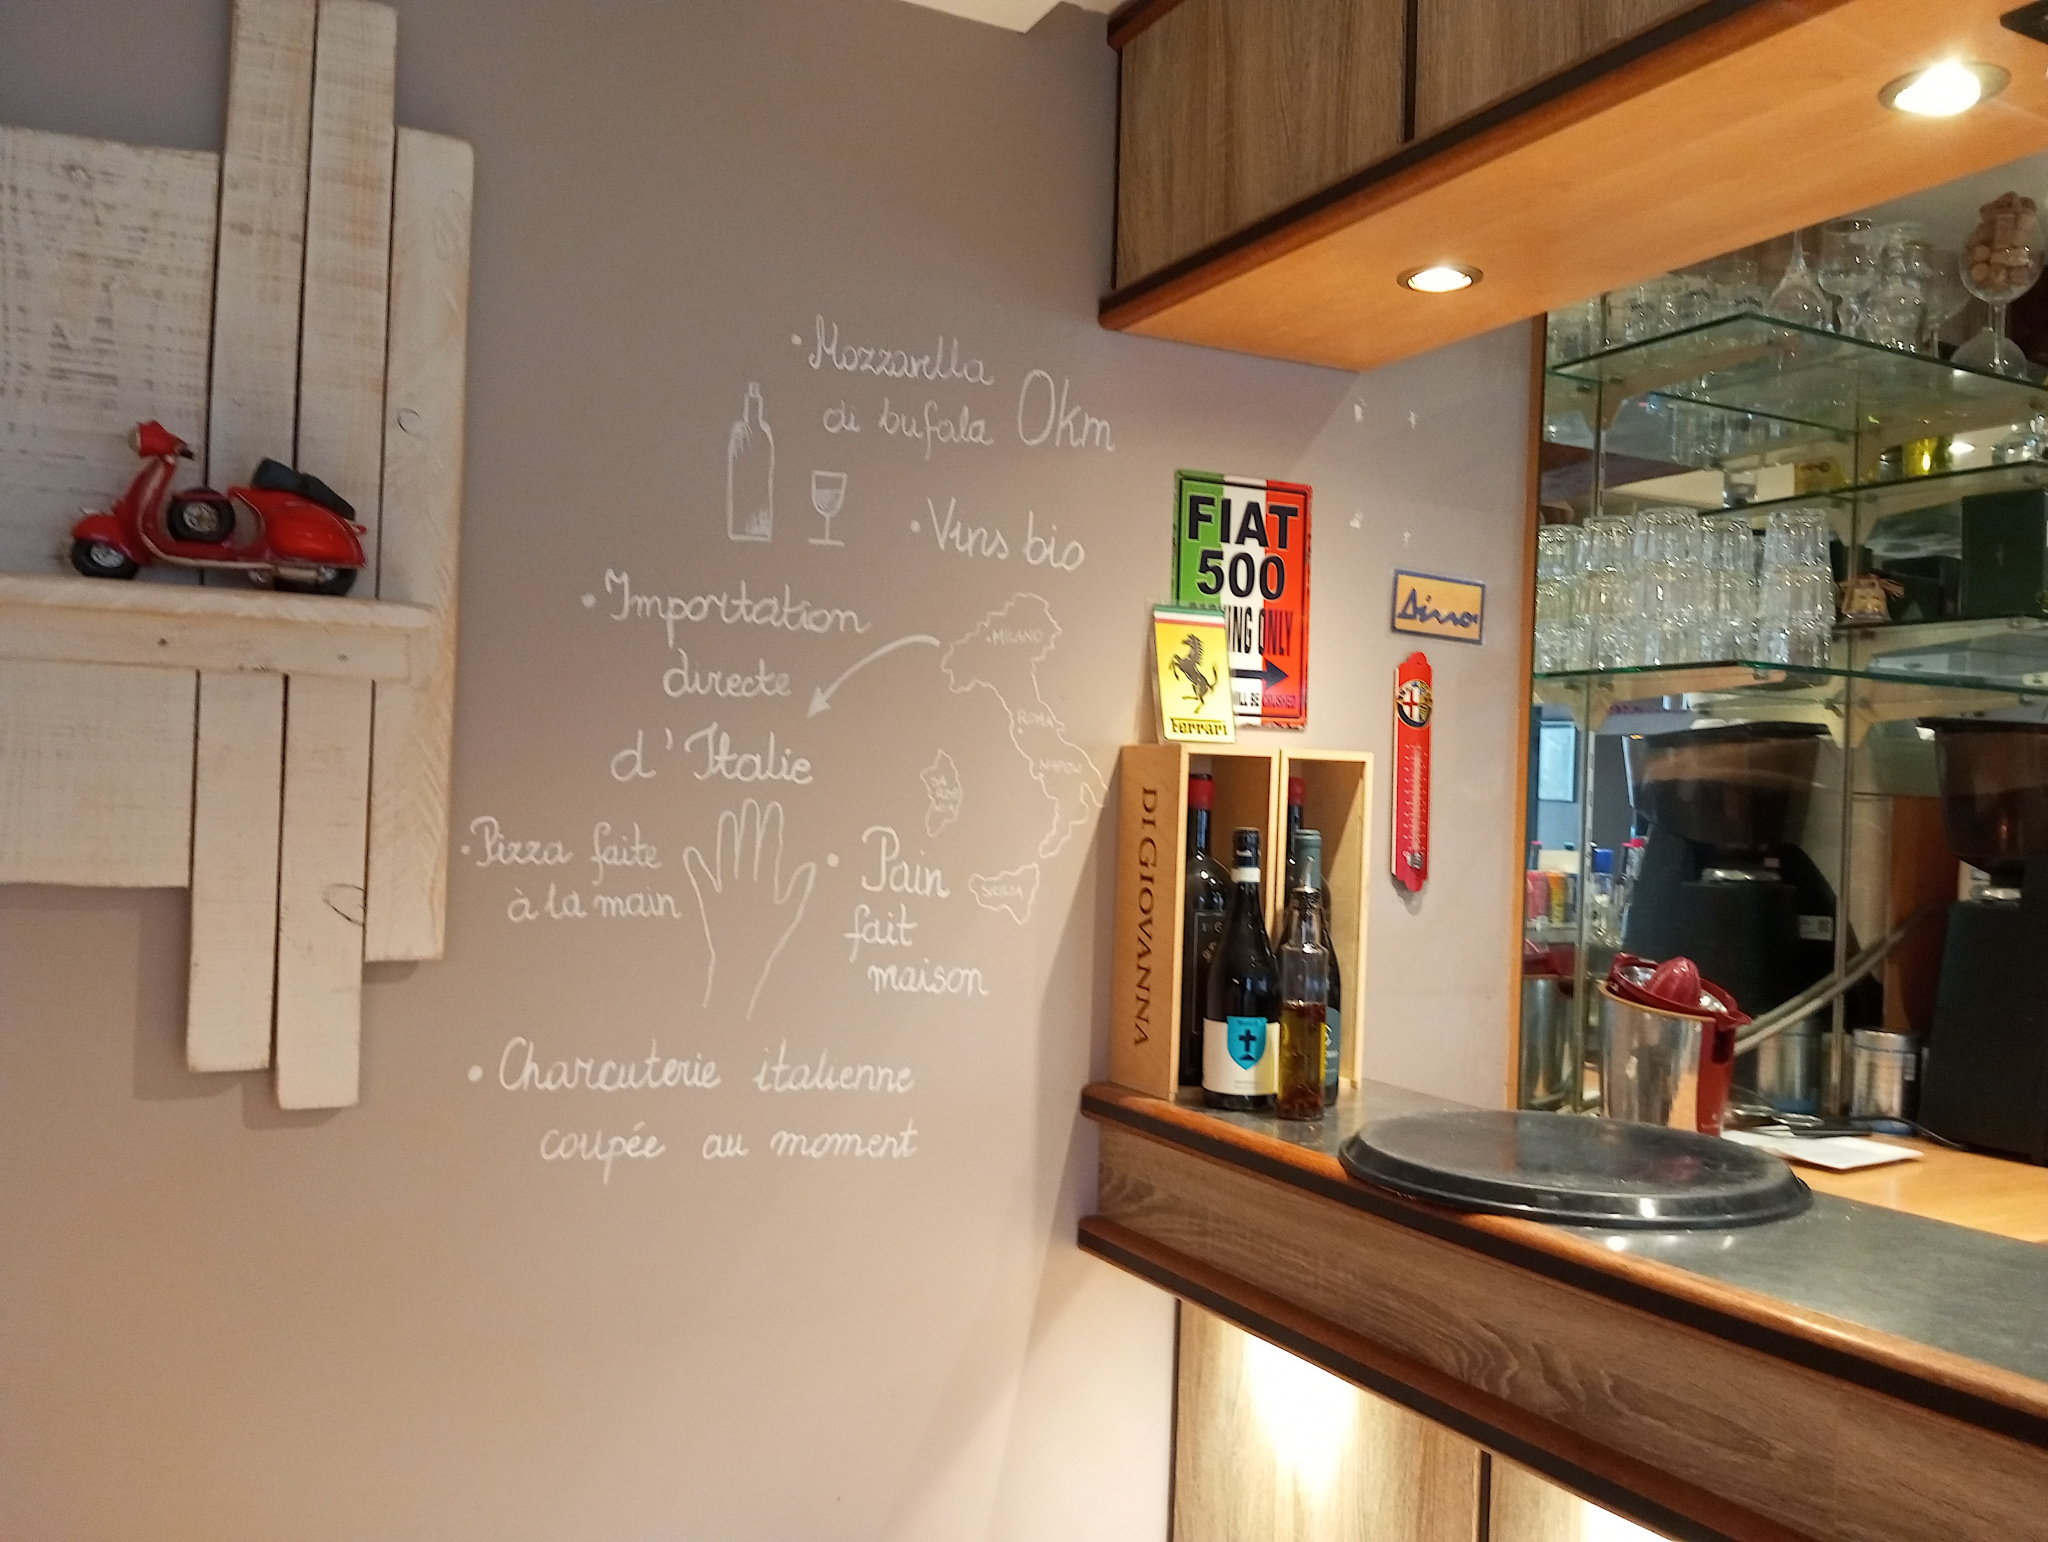 • Mozzarella
di bufala 0km
• Vins bio
• Importation
directe
d'Italie
MILANO
ROMA
NAPOLI
SA
RDE
NIA
SICILIA
• Pizza faite
à la main
• Pain
fait
maison
• Charcuterie italienne
coupée au moment
FIAT
500
ING ONLY
WILL BE CRUSHED
Ferrari
Dino
DI GIOVANNA